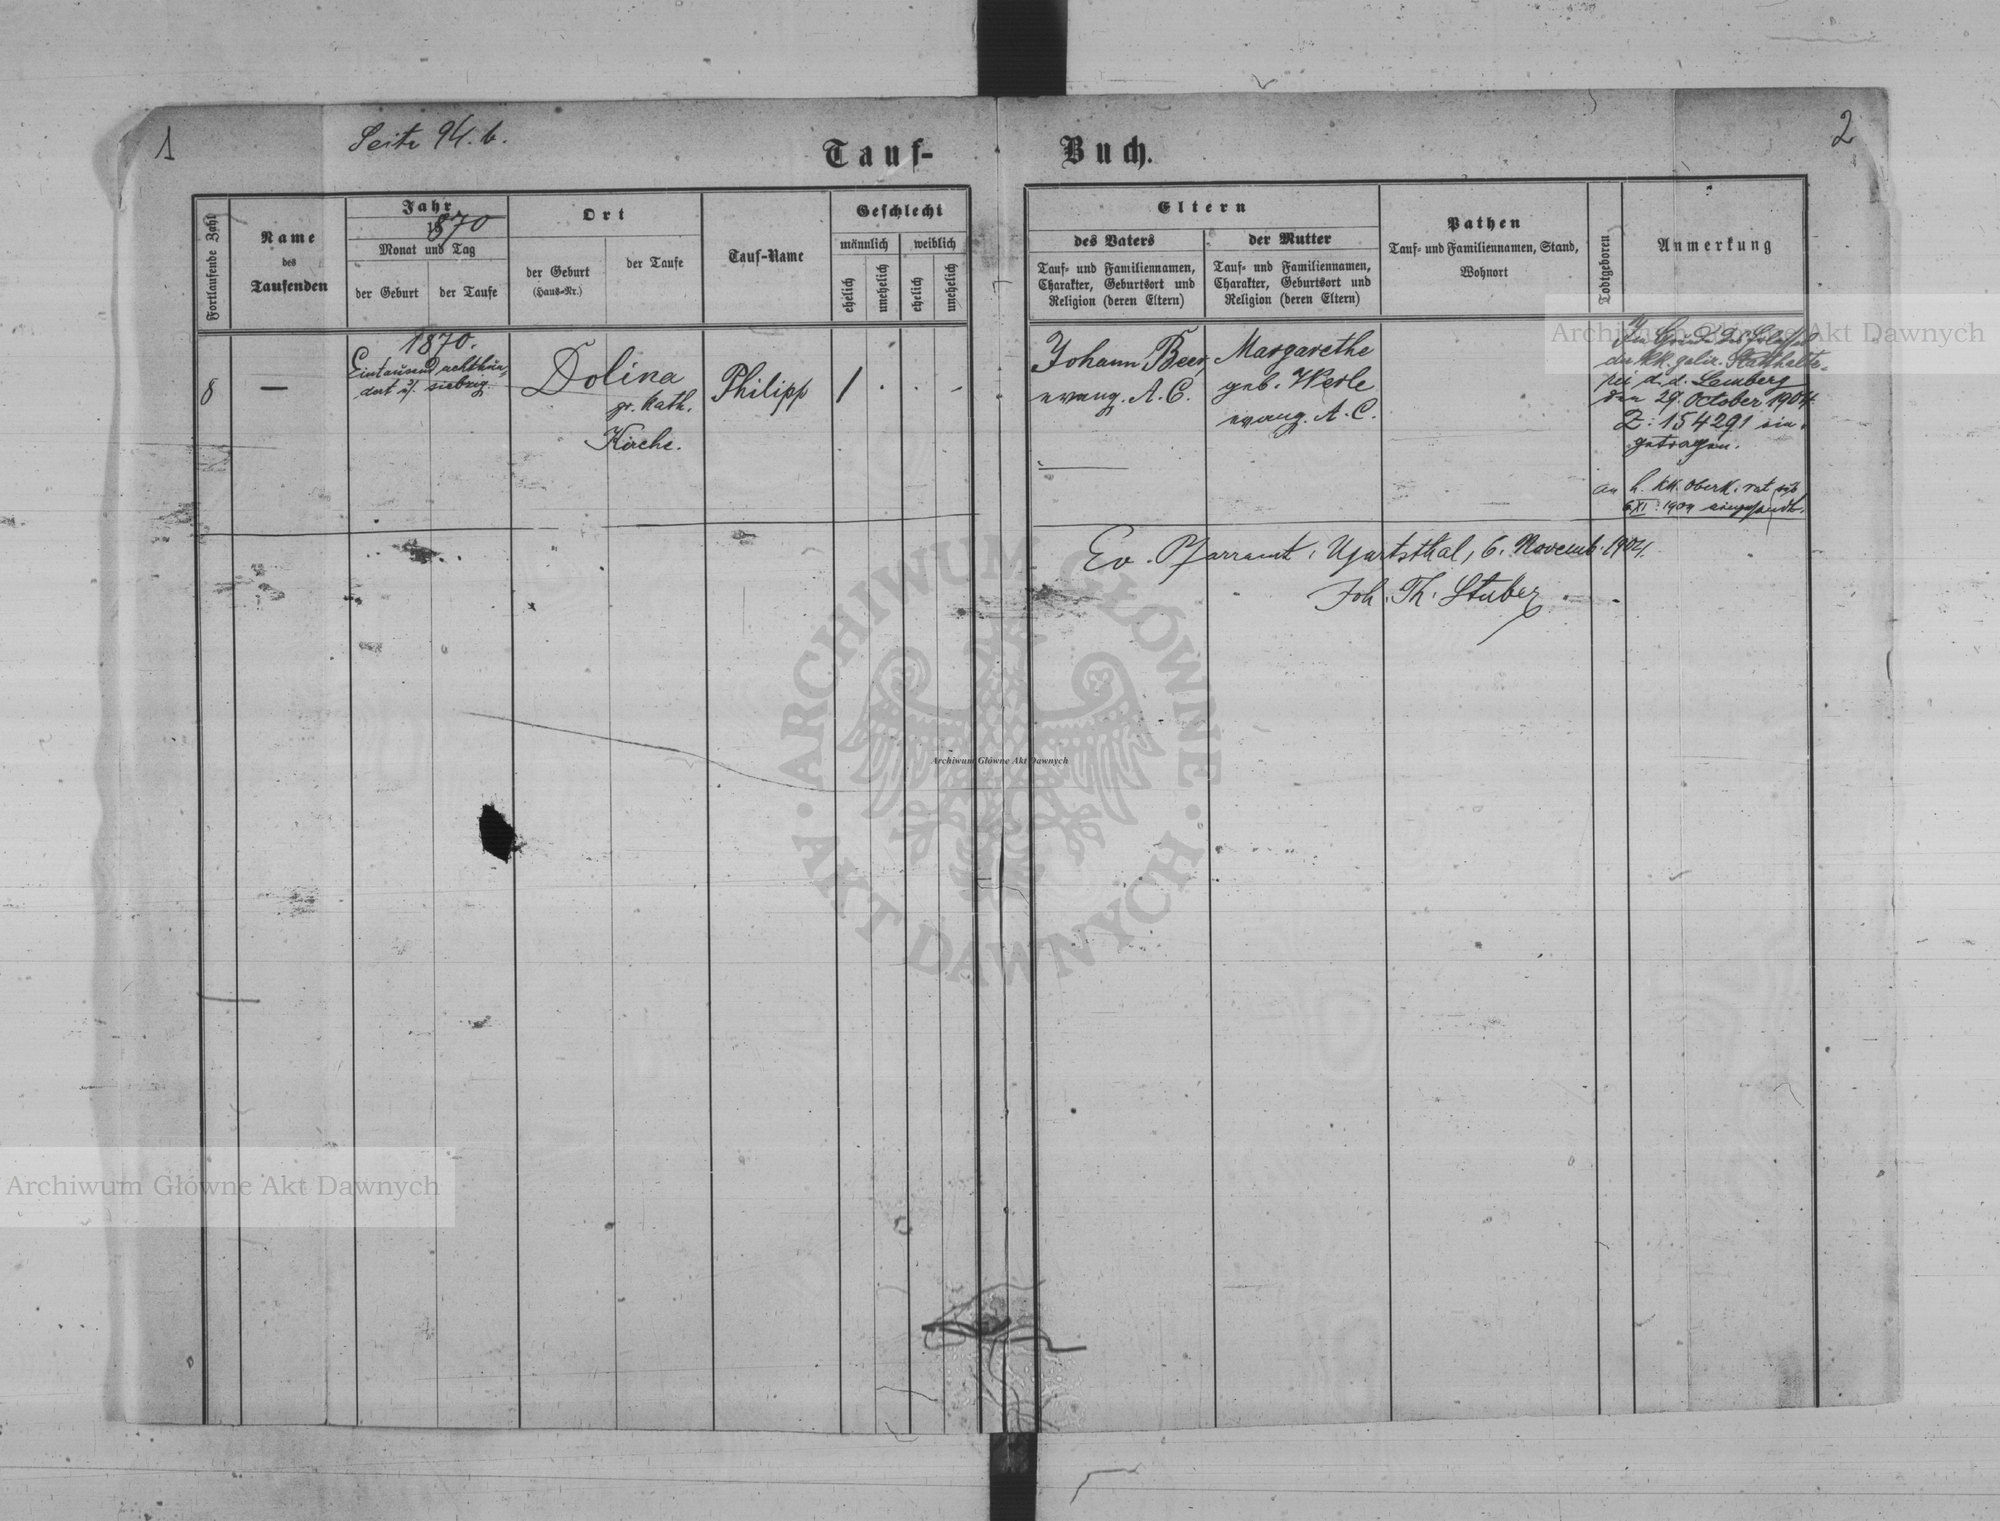 1
Seite 94. b.
Tauf-
Buch.
2
Fortlaufende Zahl
Name
des
Taufenden
Jahr
1870
Monat und Tag
der Geburt
der Taufe
Ort
der Geburt
(Haus-Nr.)
der Taufe
Tauf-Name
Geschlecht
männlich
weiblich
ehelich
unehelich
ehelich
unehelich
Eltern
des Vaters
Tauf- und Familiennamen,
Charakter, Geburtsort und
Religion (deren Eltern)
der Mutter
Tauf- und Familiennamen,
Charakter, Geburtsort und
Religion (deren Eltern)
Pathen
Tauf- und Familiennamen, Stand,
Wohnort
Todtgeboren
Anmerkung
8
—
1870.
Eintausend achthun-
dert u. siebzig.
Dolina
gr. kath.
Kirche.
Philipp
1
Johann Beer,
evang. A. C.
Margarethe
geb. Werle
evang. A. C.
Im Grunde des Erlasses
der kk. galiz. Statthalte-
rei d. d. Lemberg
den 29. October 1904
Z: 154291 ein-
getragen.
an h. kk. Oberk. rat
6/XI. 1904 eingesandt.
Ev. Pfarramt: Ugartsthal, 6. Novemb. 1904.
Joh. Th. Stuber
Archiwum Główne Akt Dawnych
ARCHIWUM GŁÓWNE
AKT DAWNYCH
Archiwum Główne Akt Dawnych
Archiwum Główne Akt Dawnych